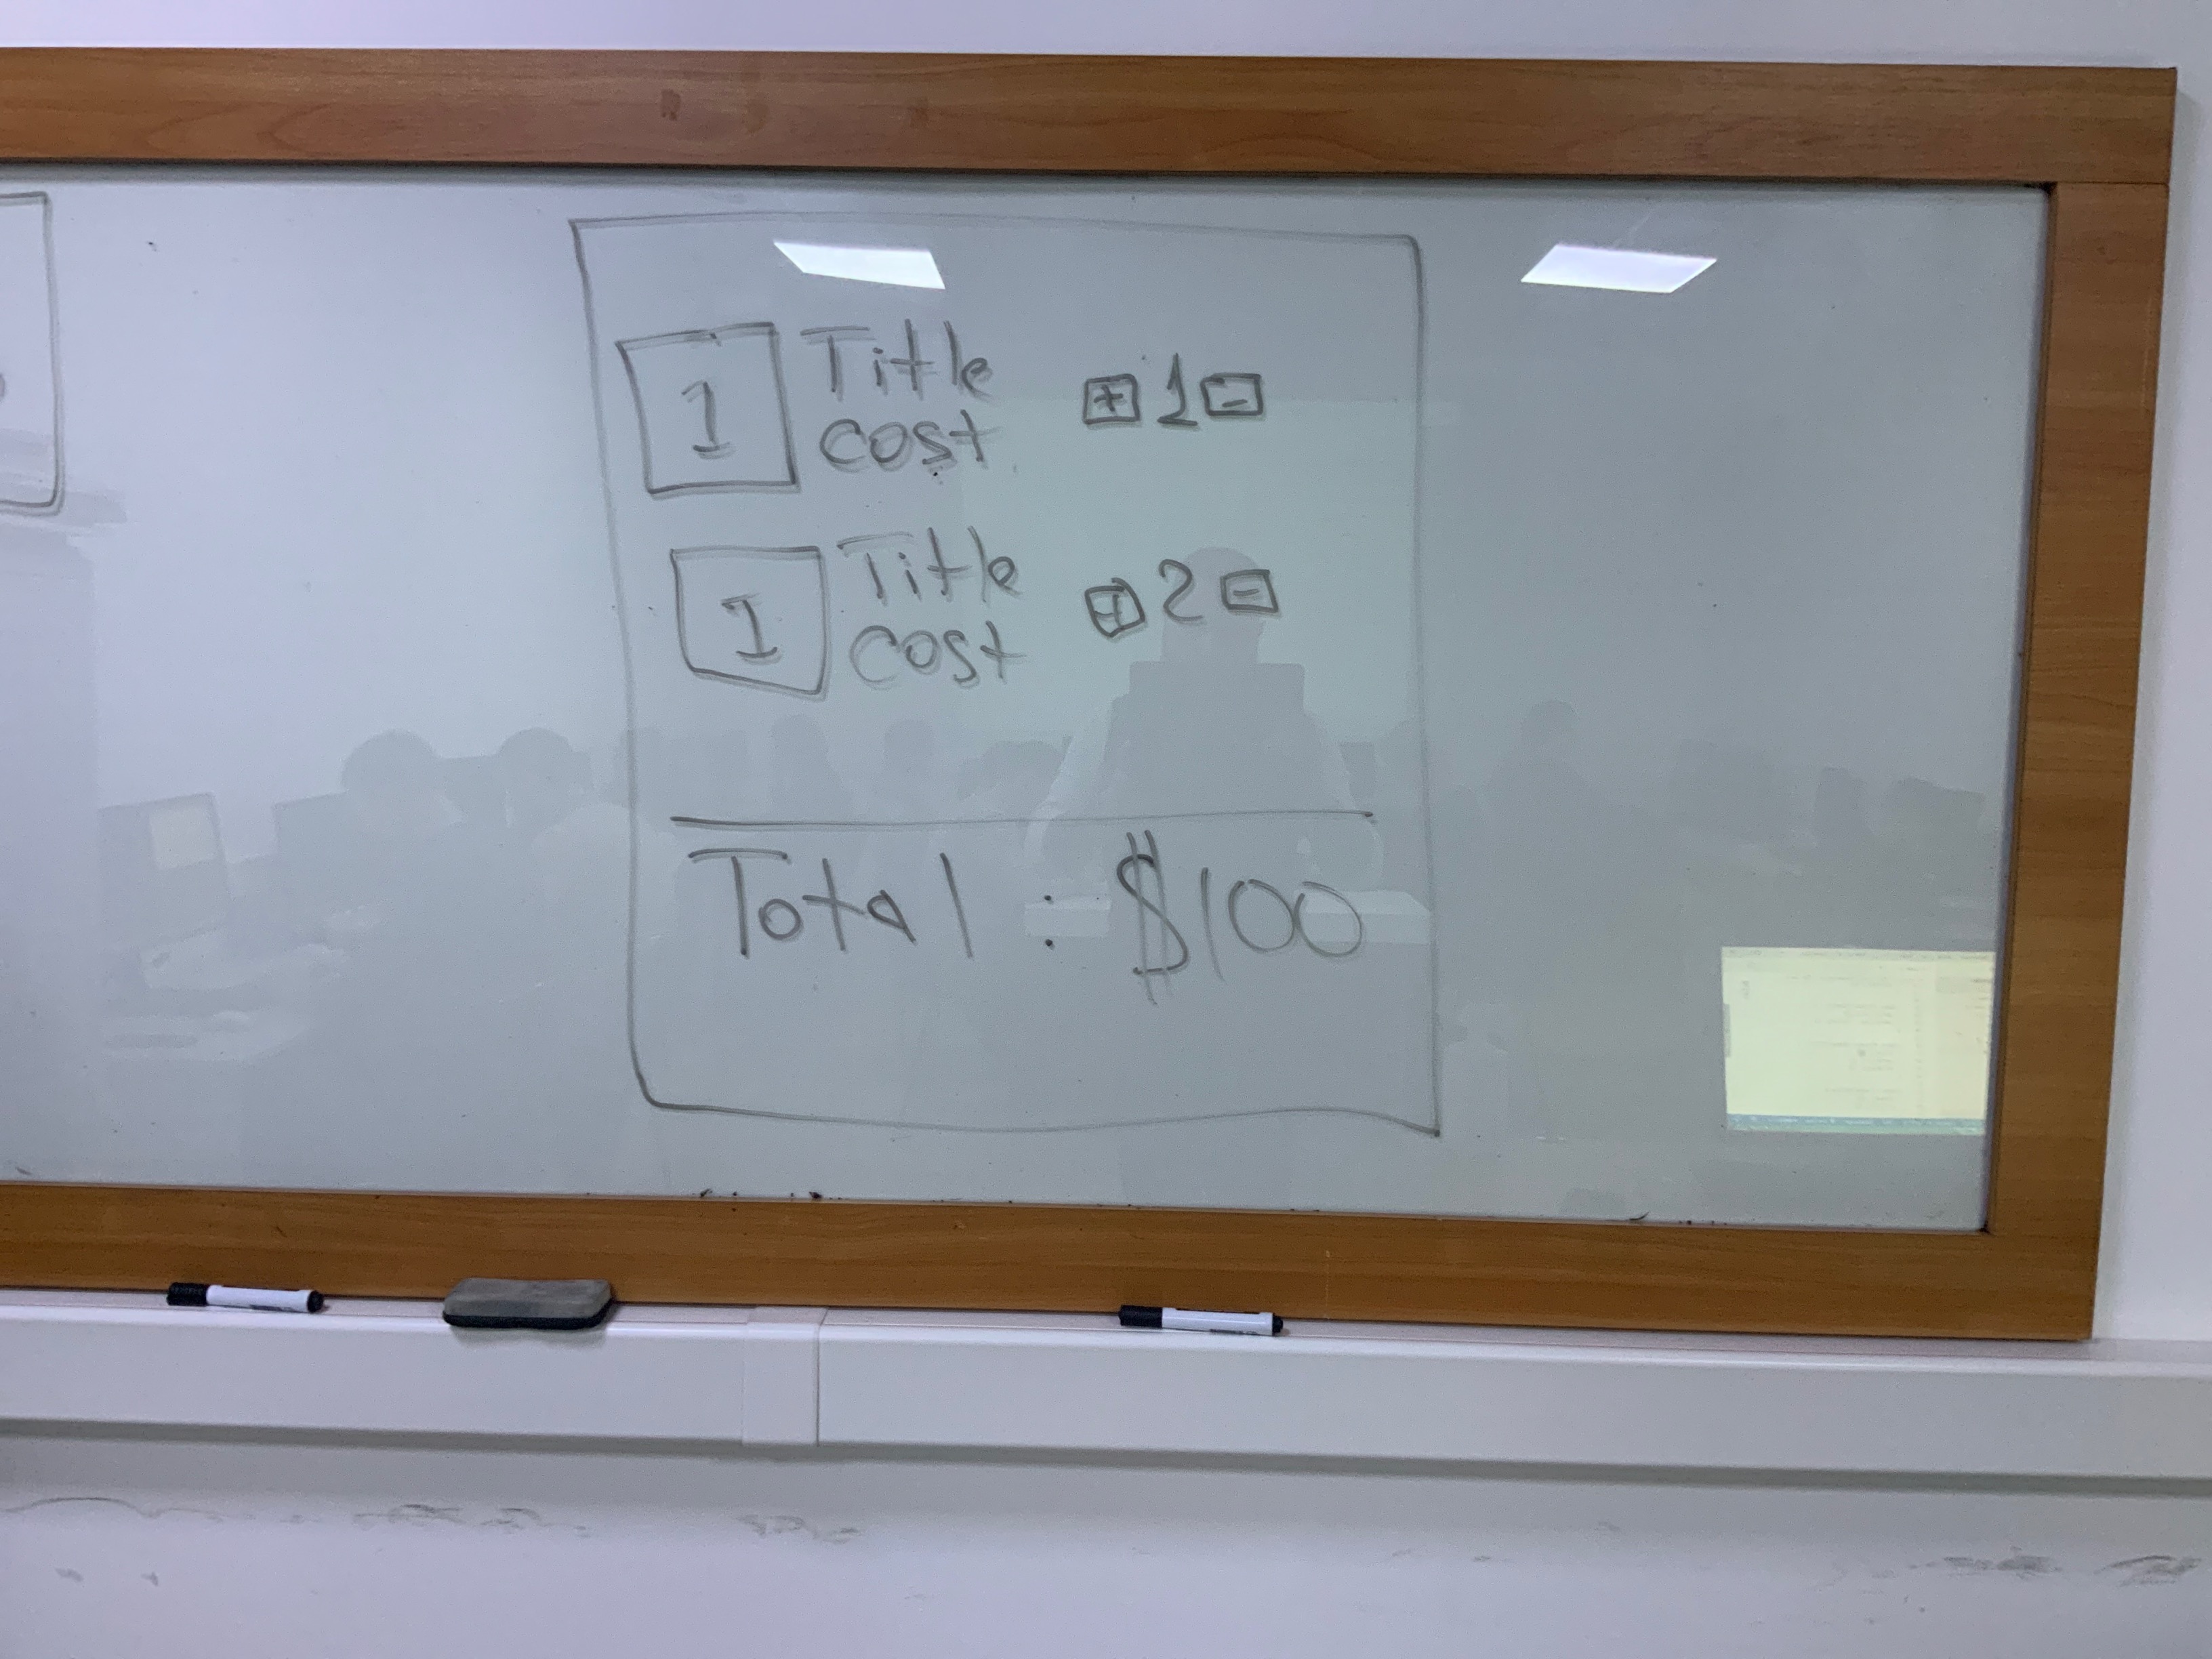 1 Title + 1 -
cost
1 Title + 2 -
cost
Total : $100